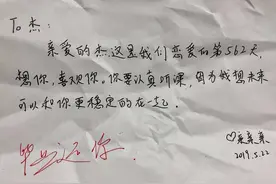 To 杰:
亲爱的杰,这是我们恋爱的第562天,
想你,喜欢你。你要认真听课,因为我想未来
可以和你更稳定的在一起
♡亲亲亲
2019.5.22
毕业还你